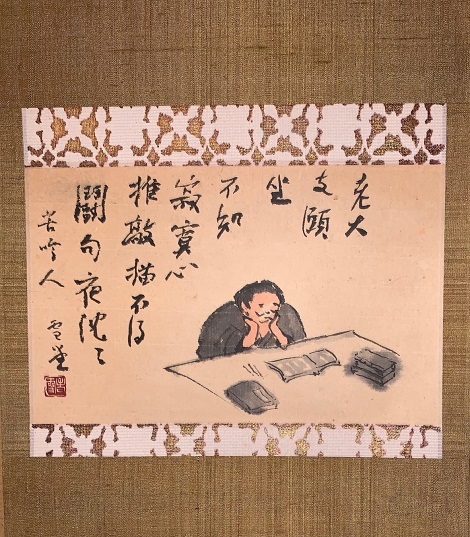 老大
支頤
坐
不知
寂寞心
推敲猶不得
鬪句夜沈々
苦吟人 雪堂